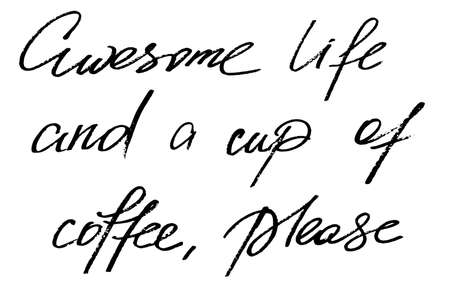 Awesome life
and a cup of
coffee, please